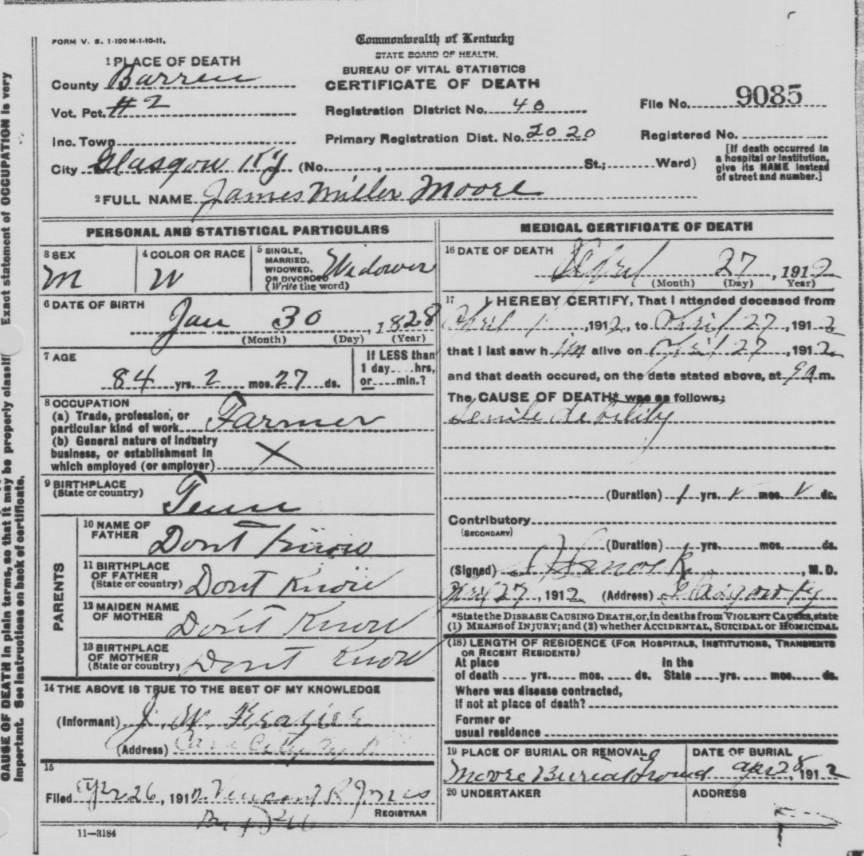 FORM V. S. 1-100 M-1-10-11.
Commonwealth of Kentucky
STATE BOARD OF HEALTH.
BUREAU OF VITAL STATISTICS
CERTIFICATE OF DEATH
1 PLACE OF DEATH
County Barren
Vot. Pct. #2
Inc. Town
City Glasgow Ky (No. , St.; Ward)
Registration District No. 40
Primary Registration Dist. No. 2020
File No. 9085
Registered No.
[If death occurred in a hospital or institution, give its NAME instead of street and number.]
2 FULL NAME James Miller Moore
PERSONAL AND STATISTICAL PARTICULARS
3 SEX
M
4 COLOR OR RACE
W
5 SINGLE, MARRIED, WIDOWED, OR DIVORCED (Write the word) Widower
6 DATE OF BIRTH
Jan 30, 1828
(Month) (Day) (Year)
7 AGE
84 yrs. 2 mos. 27 ds.
If LESS than 1 day....hrs, or....min.?
8 OCCUPATION
(a) Trade, profession, or particular kind of work Farmer
(b) General nature of industry business, or establishment in which employed (or employer) X
9 BIRTHPLACE
(State or country) Tenn
PARENTS
10 NAME OF FATHER Dont Know
11 BIRTHPLACE OF FATHER (State or country) Dont Know
12 MAIDEN NAME OF MOTHER Dont Know
13 BIRTHPLACE OF MOTHER (State or country) Dont Know
14 THE ABOVE IS TRUE TO THE BEST OF MY KNOWLEDGE
(Informant) J.
(Address)
15
Filed 26, 1912 Vincent R Jones
REGISTRAR
11-3184
MEDICAL CERTIFICATE OF DEATH
16 DATE OF DEATH
April 27, 1912
(Month) (Day) Year)
17 I HEREBY CERTIFY, That I attended deceased from
April 1, 1912, to April 27 1912
that I last saw him alive on April 27, 1912
and that death occured, on the date stated above, at 9 a m.
The CAUSE OF DEATH* was as follows:
Senile debility
(Duration) yrs. mos. ds.
Contributory
(SECONDARY)
(Duration) yrs. mos. ds.
(Signed) M. D.
27, 1912 (Address) Glasgow Ky
*State the DISEASE CAUSING DEATH, or, in deaths from VIOLENT CAUSES, state
(1) MEANS of INJURY; and (2) whether ACCIDENTAL, SUICIDAL or HOMICIDAL
(18) LENGTH OF RESIDENCE (FOR HOSPITALS, INSTITUTIONS, TRANSIENTS OR RECENT RESIDENTS)
At place of death yrs. mos. ds. In the State yrs. mos. ds.
Where was disease contracted,
if not at place of death?
Former or
usual residence
19 PLACE OF BURIAL OR REMOVAL
Moore Burial Ground
DATE OF BURIAL
Apr 28, 1912
20 UNDERTAKER
ADDRESS
CAUSE OF DEATH in plain terms, so that it may be properly classif Exact statement of OCCUPATION is very
important. See instructions on back of certificate.